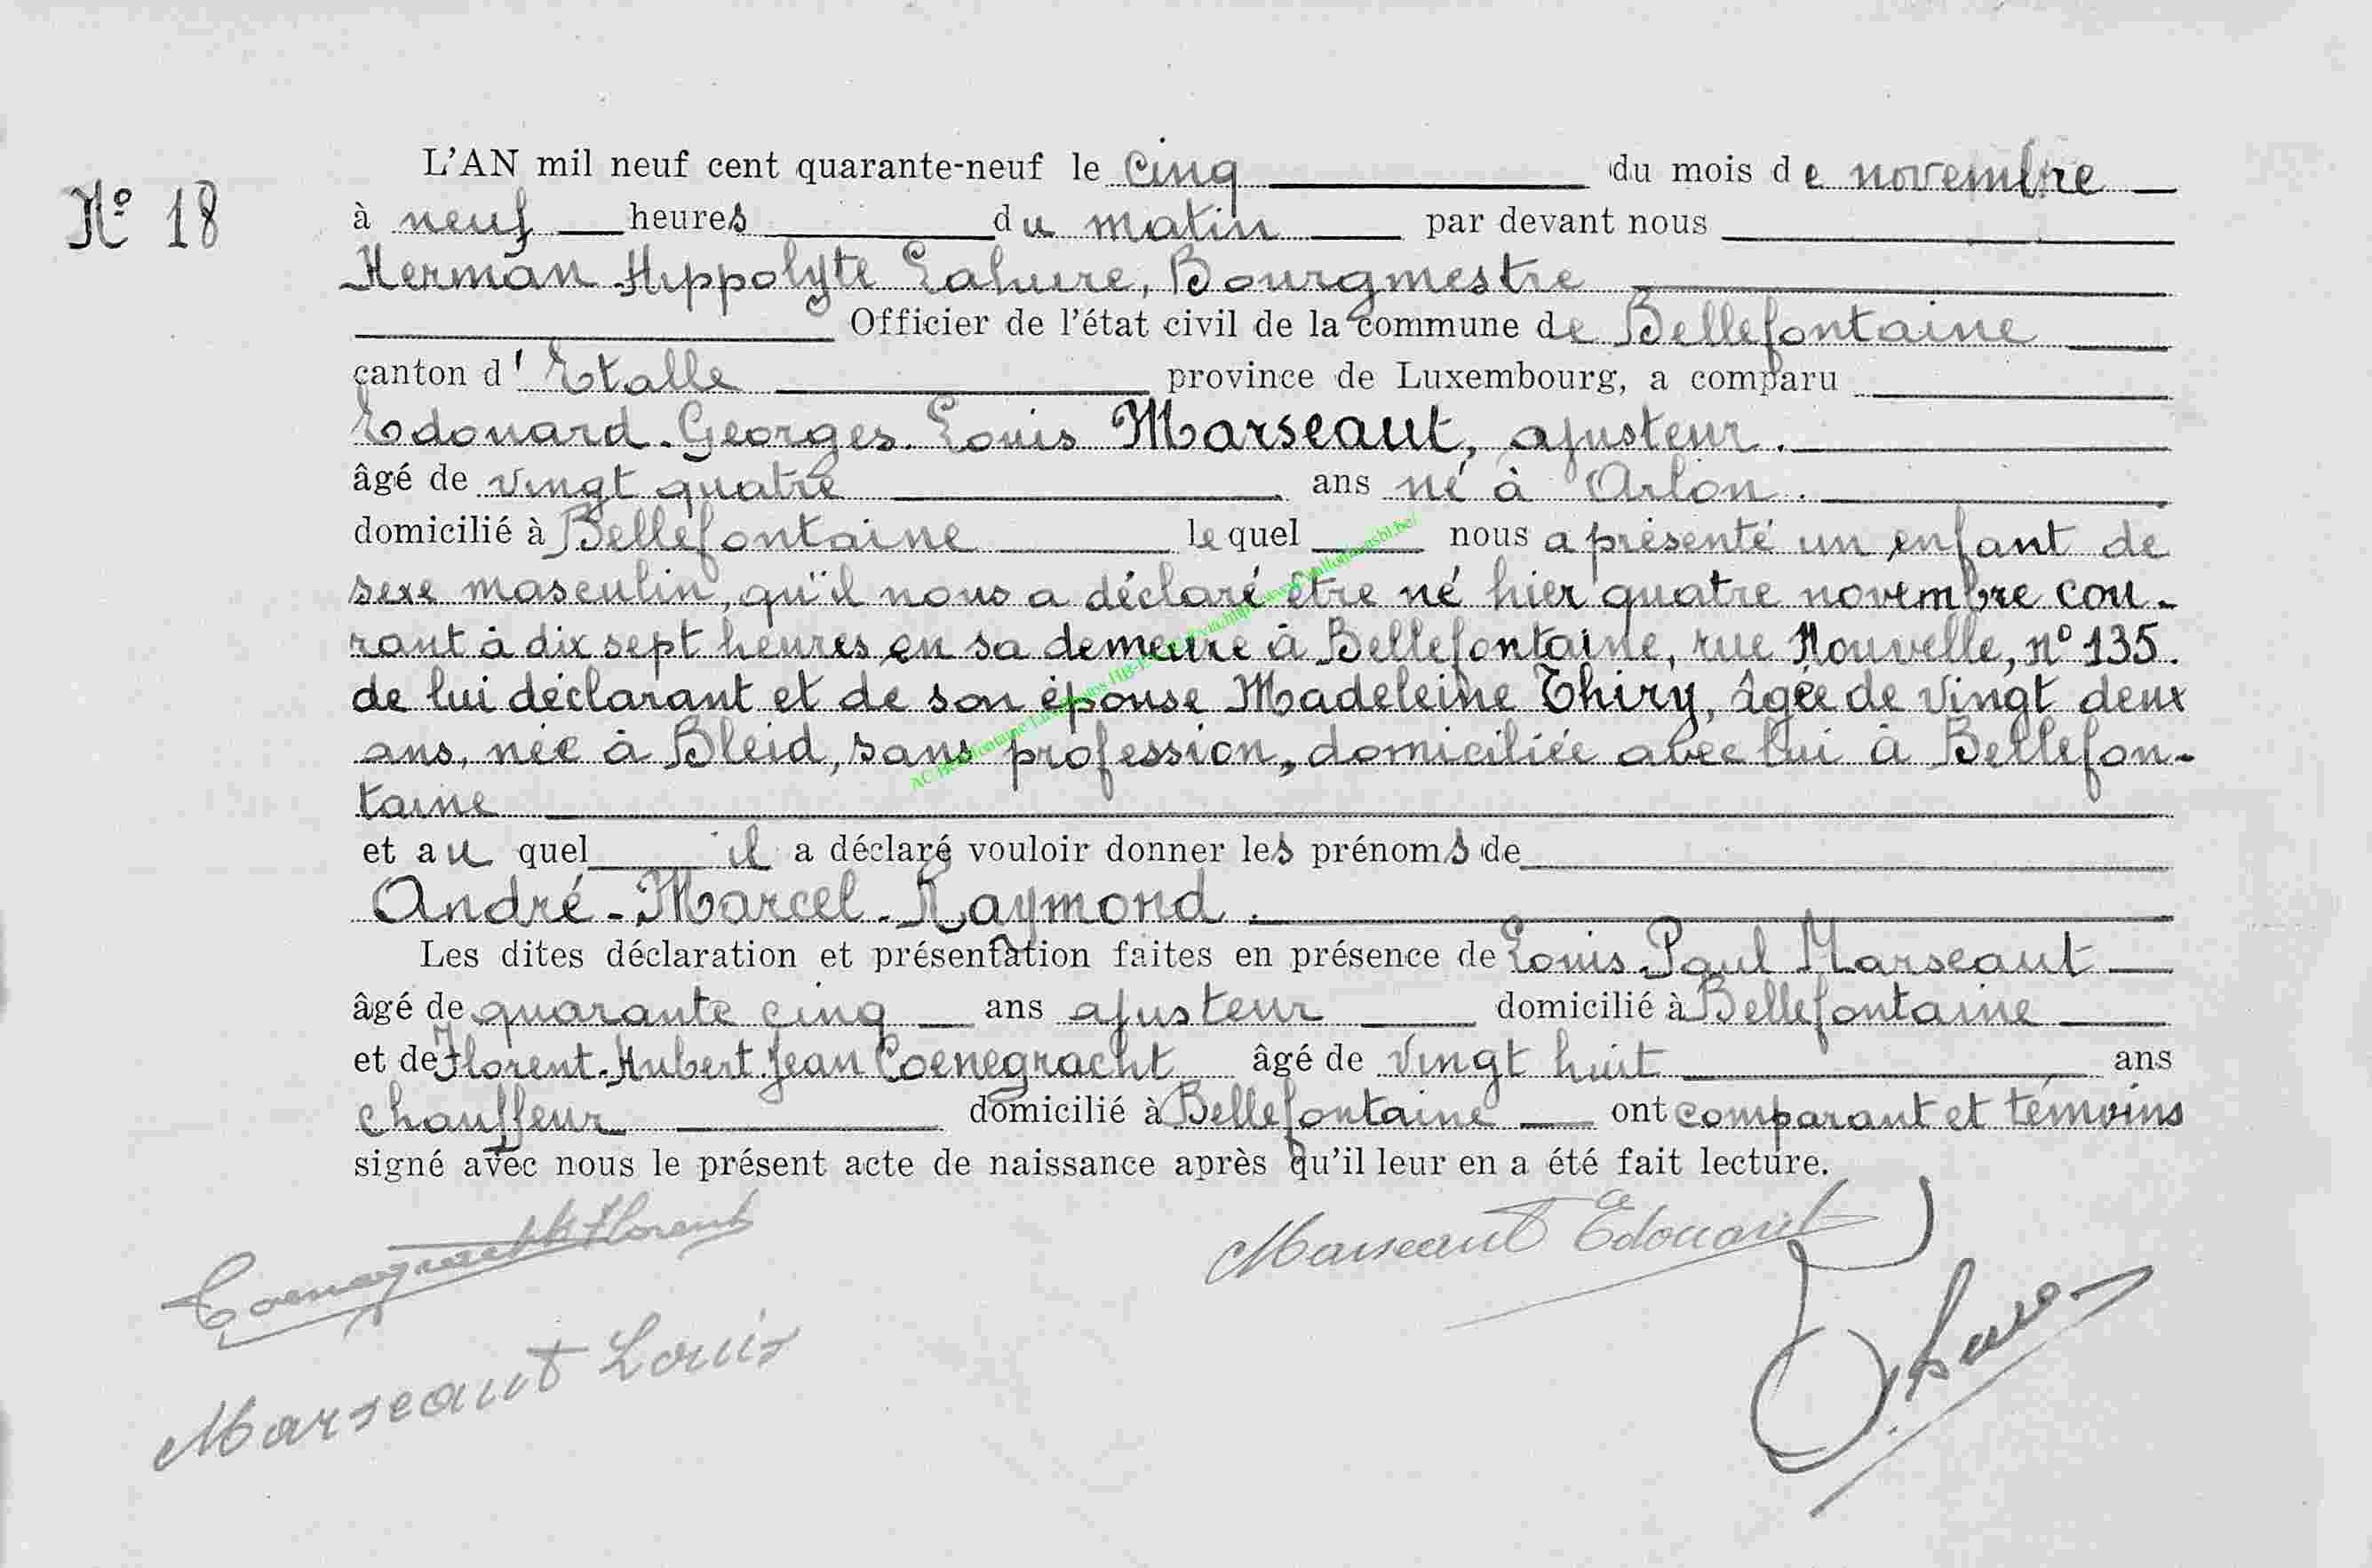 N° 18
L'AN mil neuf cent quarante-neuf le cinq du mois de novembre
à neuf heures du matin par devant nous
Herman Hippolyte Lahure, Bourgmestre
Officier de l'état civil de la commune de Bellefontaine
canton d' Etalle province de Luxembourg, a comparu
Edouard-Georges-Louis Marseaut, ajusteur.
âgé de vingt quatre ans né à Arlon.
domicilié à Bellefontaine lequel nous a présenté un enfant de
sexe masculin, qu'il nous a déclaré être né hier quatre novembre cou-
rant à dix sept heures en sa demeure à Bellefontaine, rue Nouvelle, n° 135.
de lui déclarant et de son épouse Madeleine Thiry, âgée de vingt deux
ans, née à Bleid, sans profession, domiciliée avec lui à Bellefon-
taine
et au quel il a déclaré vouloir donner les prénoms de
André-Marcel-Raymond.
Les dites déclaration et présentation faites en présence de Louis-Paul Marseaut
âgé de quarante cinq ans ajusteur domicilié à Bellefontaine
et de Florent-Hubert-Jean Coenegracht âgé de vingt huit ans
chauffeur domicilié à Bellefontaine ont comparant et témoins
signé avec nous le présent acte de naissance après qu'il leur en a été fait lecture.
Coenegracht Florent
Marseaut Edouard
Marseaut Louis